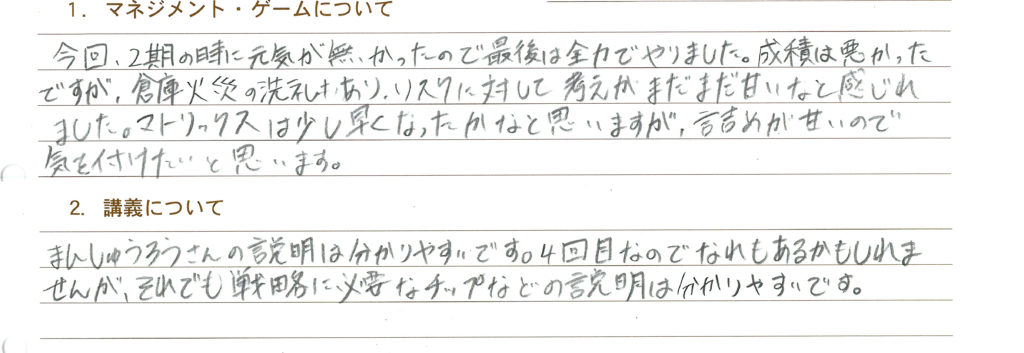 1. マネジメント・ゲームについて
今回、2期の時に元気が無かったので最後は全力でやりました。成績は悪かった
ですが、倉庫火災の洗礼もあり、リスクに対して考えがまだまだ甘いなと感じれ
ました。マトリックスは少し早くなったかなと思いますが、詰めが甘いので
気を付けたいと思います。
2. 講義について
まんしゅうろうさんの説明は分かりやすいです。4回目なのでなれもあるかもしれま
せんが、それでも戦略に必要なチップなどの説明は分かりやすいです。